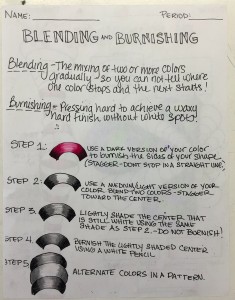 NAME: PERIOD:
BLENDING AND BURNISHING
Blending - The mixing of two or more colors
gradually so you can not tell where
one color stops and the next starts!
Burnishing - Pressing hard to achieve a waxy
hard finish without white spots!
STEP 1:
USE A DARK VERSION OF YOUR COLOR
to burnish the sides of your shape
(STAGGER - DONT STOP IN A STRAIGHT LINE)
STEP 2:
USE A MEDIUM/LIGHT VERSION OF YOUR
COLOR. BLEND TWO COLORS - STAGGER
TOWARD THE CENTER.
STEP 3:
LIGHTLY SHADE THE CENTER THAT
IS STILL WHITE USING THE SAME
SHADE AS STEP 2. - DO NOT BURNISH!
STEP 4:
BURNISH THE LIGHTLY SHADED CENTER
USING A WHITE PENCIL.
STEP 5:
ALTERNATE COLORS IN A PATTERN.